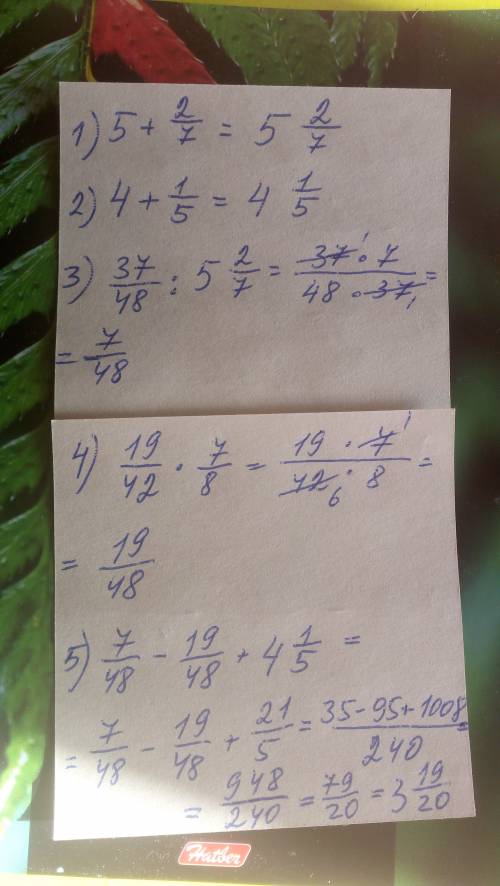 1) 5 + 2/7 = 5 2/7
2) 4 + 1/5 = 4 1/5
3) 37/48 : 5 2/7 = 37¹ · 7 / 48 · 37₁ =
= 7/48
4) 19/42 · 7/8 = 19 · 7¹ / 42₆ · 8 =
= 19/48
5) 7/48 - 19/48 + 4 1/5 =
= 7/48 - 19/48 + 21/5 = 35-95+1008 / 240 =
= 948/240 = 79/20 = 3 19/20
Hatber